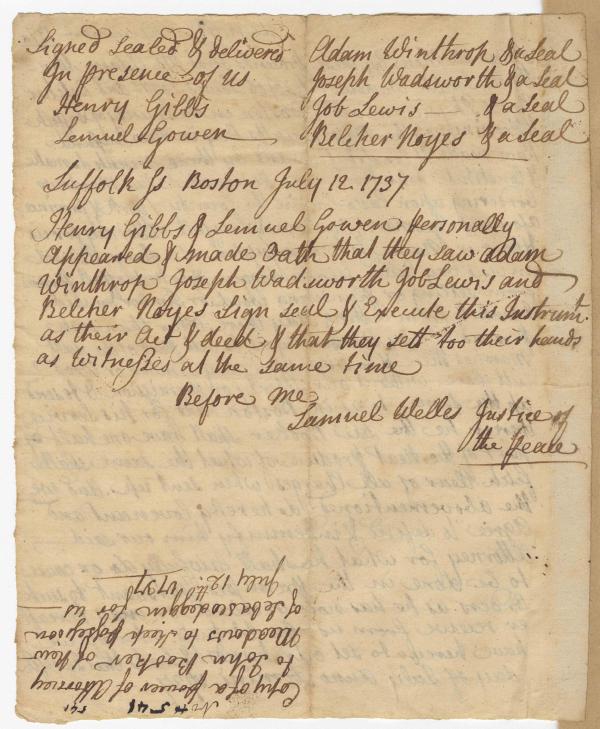 Signed sealed & delivered
In presence of us
Henry Gibbs
Lemuel Gowen
Adam Winthrop & a Seal
Joseph Wadsworth & a Seal
Job Lewis — & a Seal
Belcher Noyes & a Seal
Suffolk ss Boston July 12 1737
Henry Gibbs & Lemuel Gowen personally
Appeared & made Oath that they saw Adam
Winthrop Joseph Wadsworth Job Lewis and
Belcher Noyes Sign seal & Execute this Instrumt.
as their Act & deed & that they sett too their hands
as Witnesses at the same time
Before me
Samuel Welles Justice of
the Peace
No
Copy of a power of Attorney
to John Booker of New
Meadows to keep possession
of Sebascodeggin for us
July 12th 1737